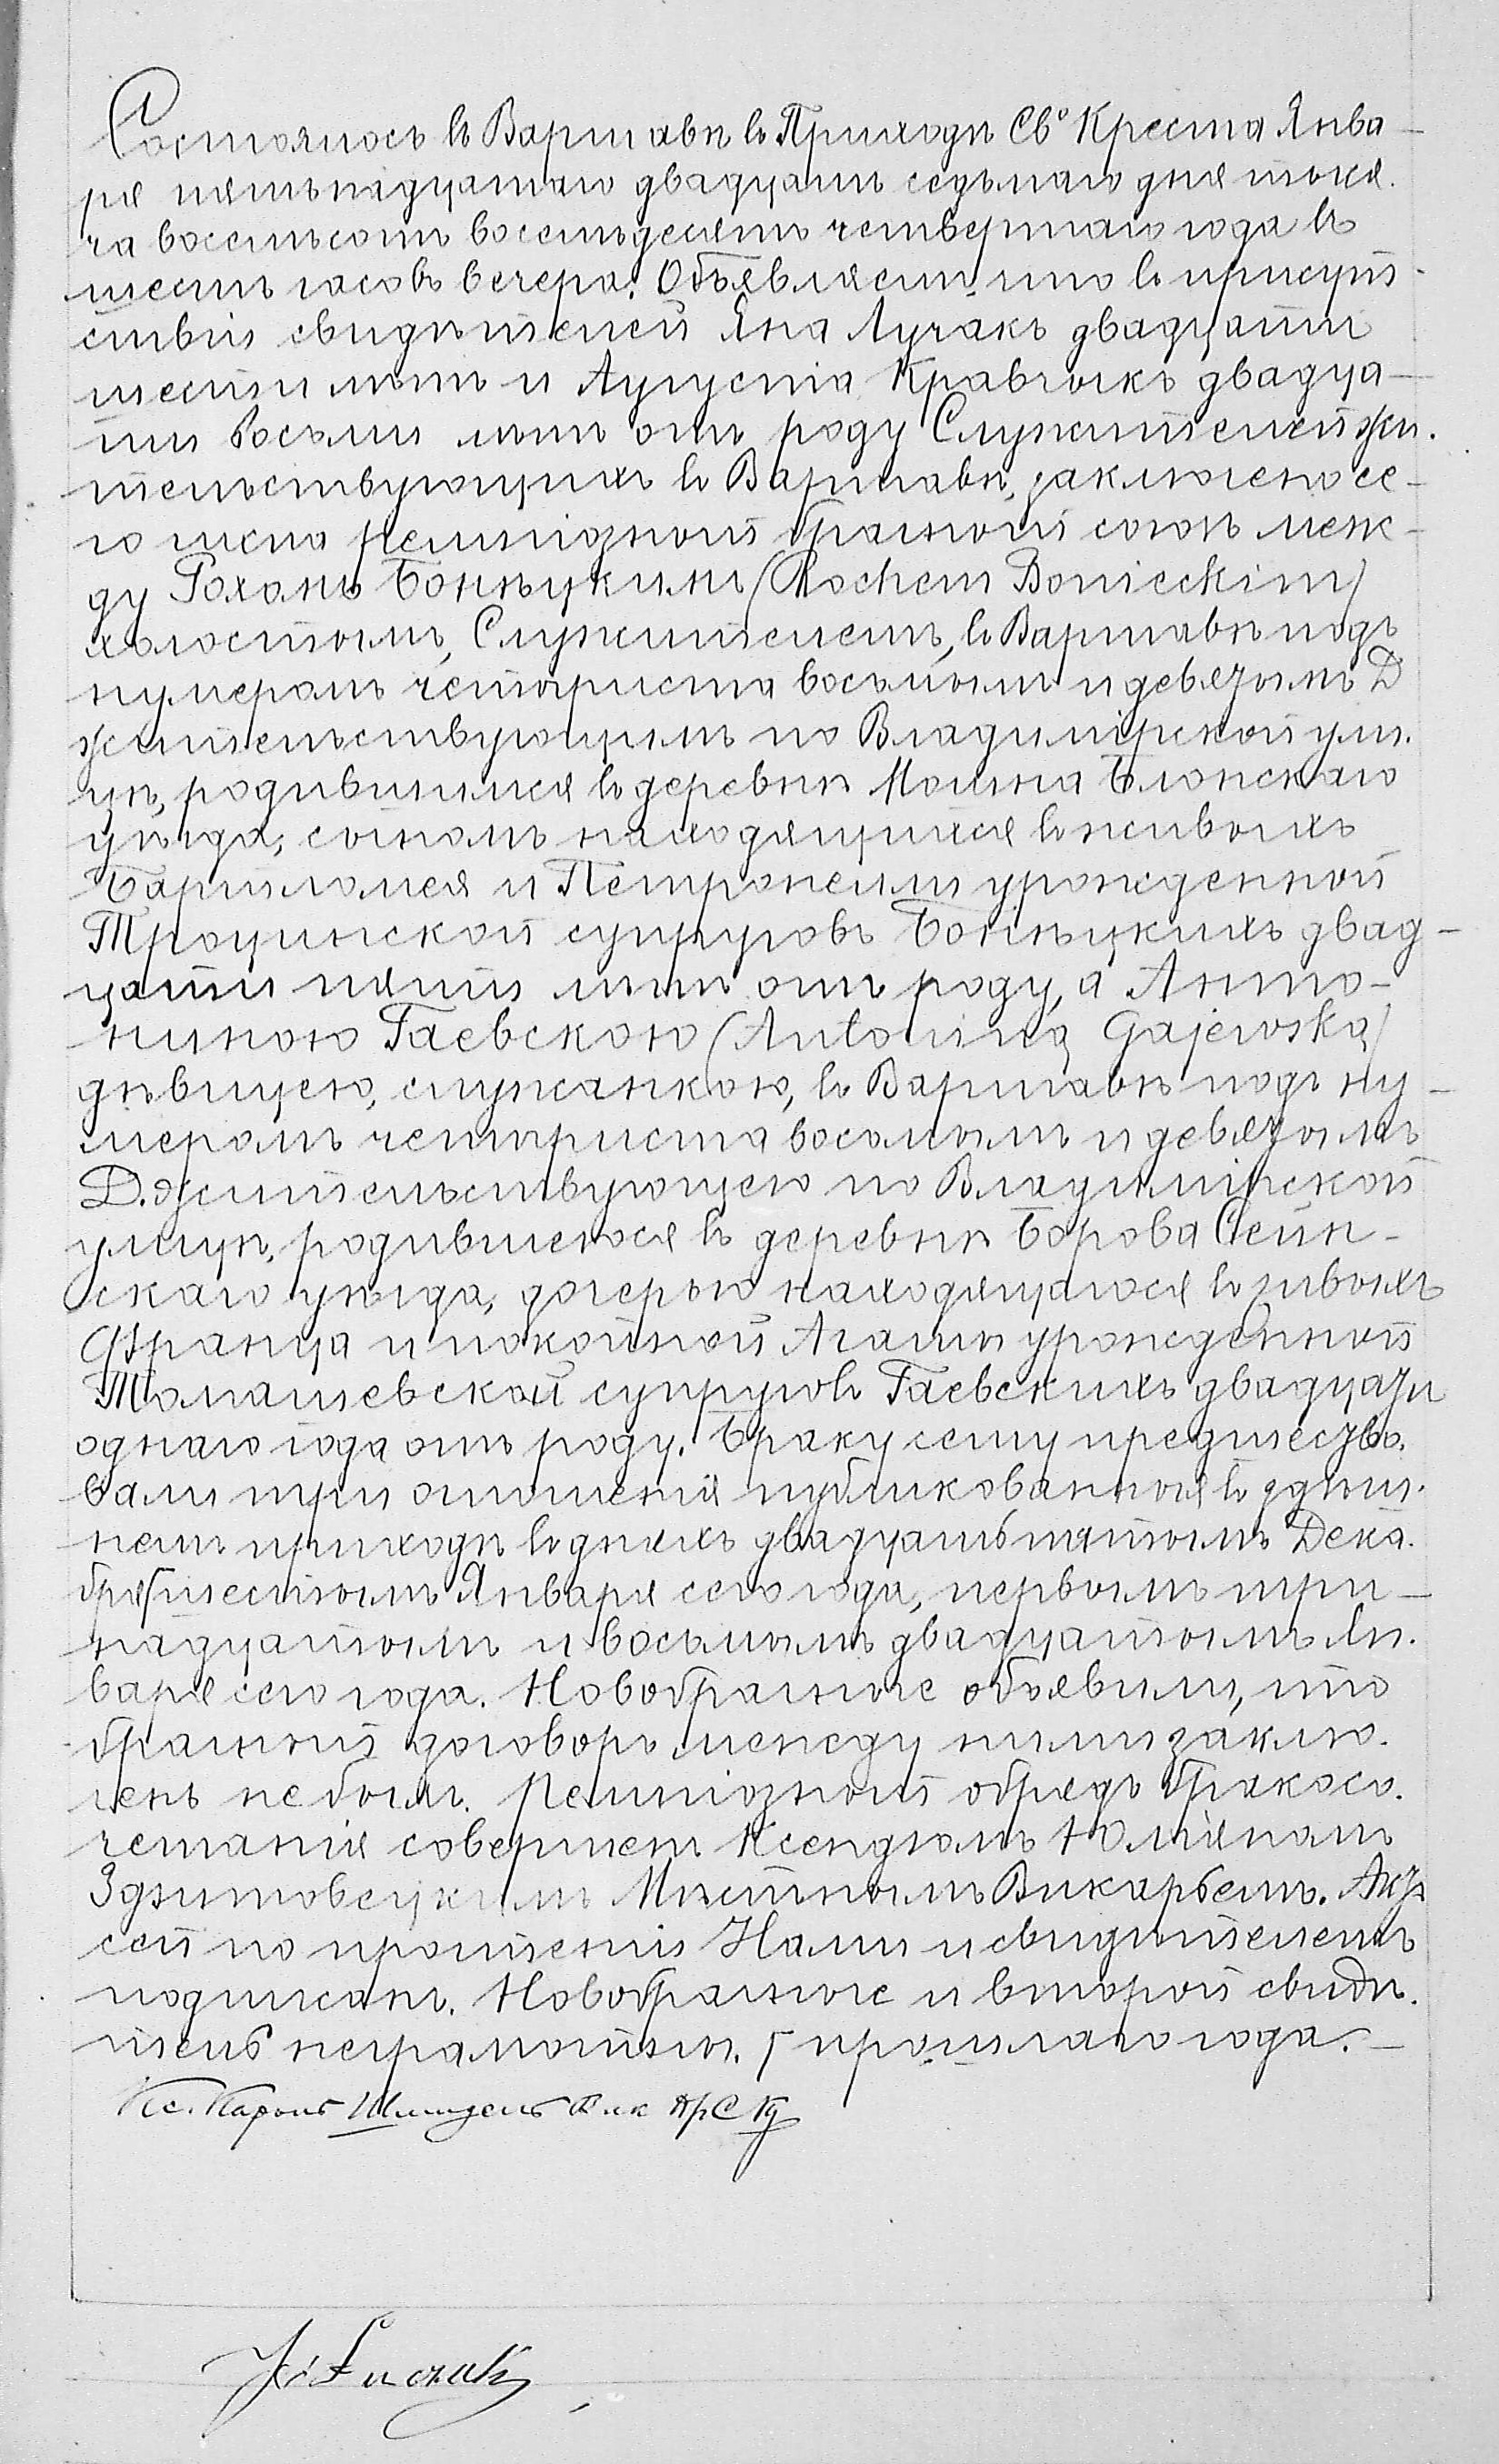 Состоялось въ Варшавѣ въ Приходѣ Св° Креста Янва-
ря пятьнадцатаго двадцать седьмаго дня тыся.
ча восемьсотъ восемьдесятъ четвертаго года въ
шесть часовъ вечера. Объявляемъ, что въ присут-
ствіи свидѣтелей Яна Лучакъ двадцати
шести лѣтъ и Августа Кравчыкъ двадца-
ти восьми лѣтъ отъ роду Служителей жи.
тельствующихъ въ Варшавѣ, заключено се-
го числа Религіозный брачный союзъ меж-
ду Рохомъ Бонѣцкимъ (Rochem Bonieckim)
холостымъ, Служителемъ, въ Варшавѣ подъ
нумеромъ четыриста восьмымъ и девятымъ Д
жительствующимъ по Владимірской ули.
цѣ, родившимся въ деревнѣ Мошна Блонскаго
уѣзда, сыномъ находящихся въ живыхъ
Бартломея и Петронели урожденной
Троцинской супруговъ Бонѣцкихъ двад-
цати пяти лѣтъ отъ роду, а Анто-
ниною Гаевскою (Antoniną Gajewską)
дѣвицею, служанкою, въ Варшавѣ подъ ну-
меромъ четыриста восьмымъ и девятымъ
Д. жительствующею по Владимірской
улицѣ, родившеюся въ деревнѣ Борова Сейн-
скаго уѣзда, дочерью находящагося въ живыхъ
Франца и покойной Агаты урожденной
Томашевской супруговъ Гаевскихъ двадцати
однаго года отъ роду. Браку сему предшество.
вали три оглошенія публикованныя въ здѣш.
немъ приходѣ въ дняхъ двадцать пятымъ Дека.
бря шестымъ Января сего года, первымъ три-
надцатымъ и восьмымъ двадцатымъ Ян.
варя сего года. Новобрачные объявили, что
брачный договоръ между ними заклю.
ченъ не былъ. Религіозный обрядъ бракосо.
четанія совершенъ Ксендзомъ Юліяномъ
Здзитовецкимъ Мѣстнымъ Викарьемъ. Актъ
сей по прочтеніи Нами и свидѣтелемъ
подписанъ. Новобрачные и второй свидѣ.
тель неграмотны. Г прошлаго года.-
Кс. Кароль Шмидель Вик ПрСКр
J Łuczak